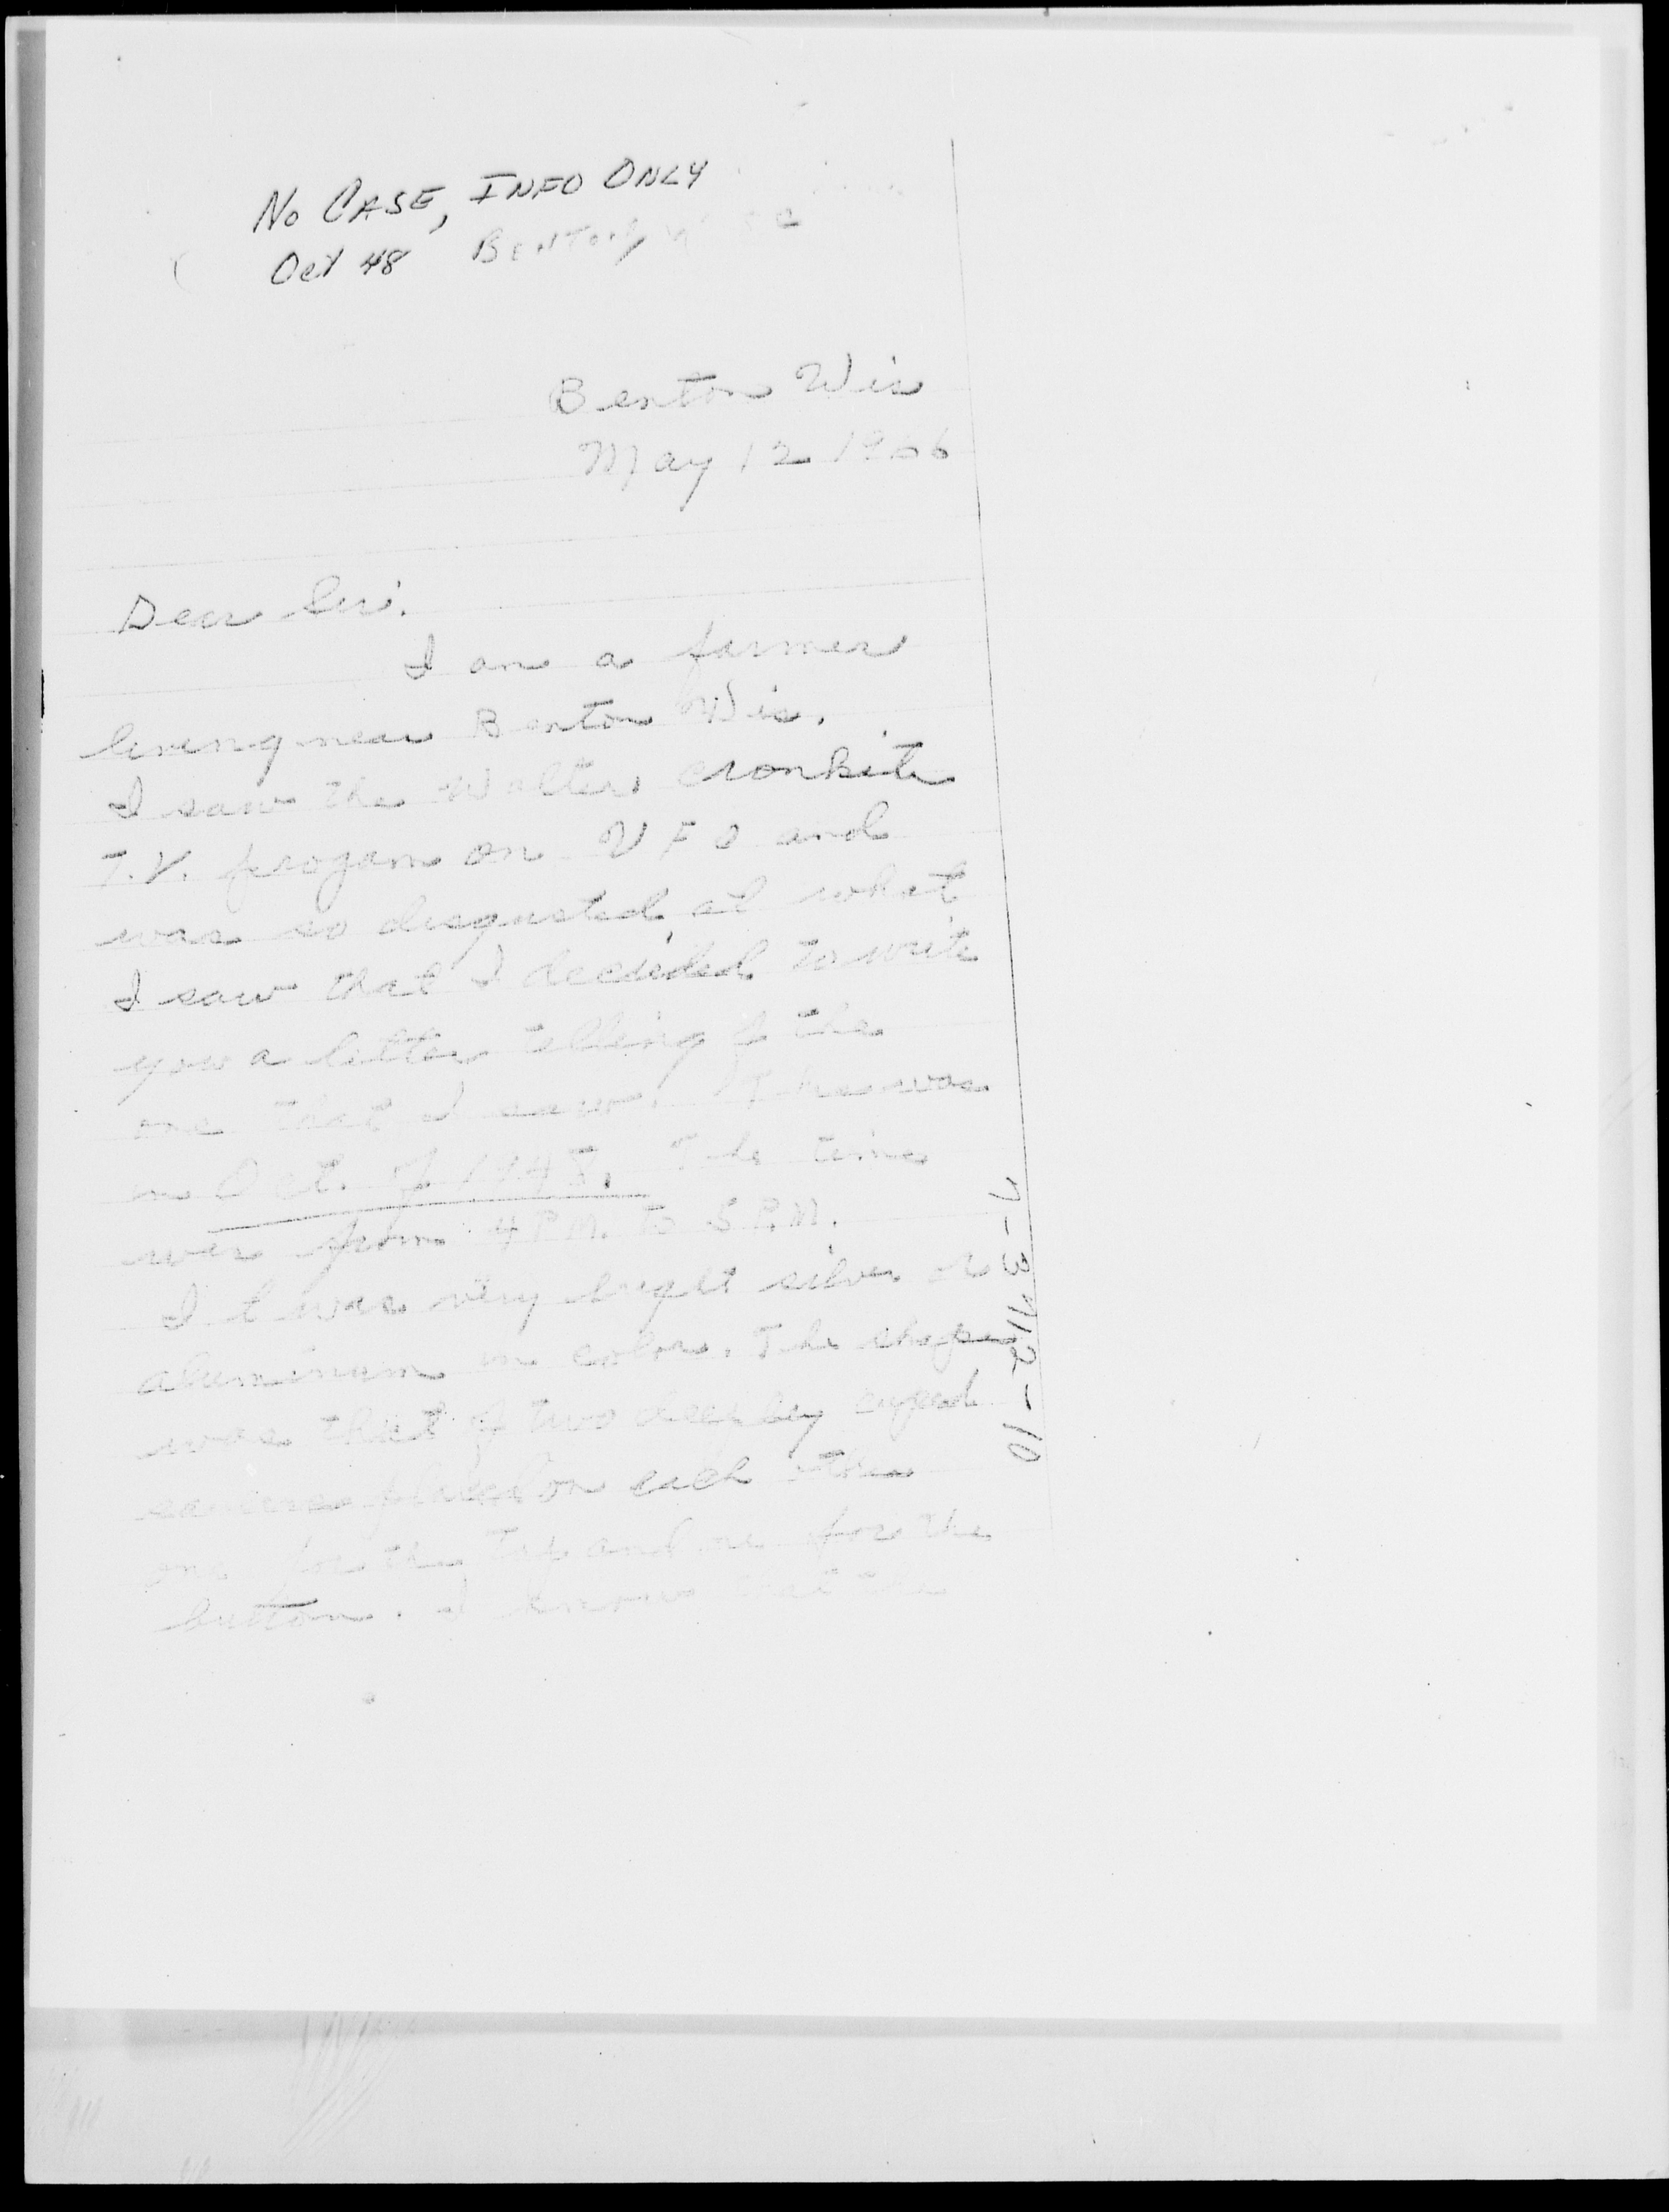 No CASE, INFO ONLY
Oct 48 BENTON, WISC
Benton Wis
May 12 1966
Dear Sir.
I am a farmer
living near Benton Wis.
I saw the Walter Cronkite
T.V. progam on UFO and
was so disgusted at what
I saw that I decided to write
you a letter telling of the
one that I saw. This was
in Oct. of 1948. The time
was from 4 P.M. to 5 P.M.
It was very bright silver or
aluminum in color. The shape
was that of two deeply cuped
saucers placed on each other
one for the top and one for the
buttom. I know that the
7-3712-10